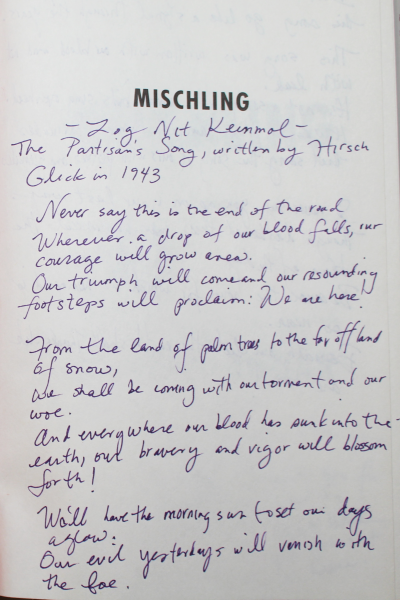 MISCHLING
- Zog Nit Keinmol -
The Partisan's Song, written by Hirsch
Glick in 1943
Never say this is the end of the road
Wherever a drop of our blood falls, our
courage will grow anew.
Our triumph will come and our resounding
footsteps will proclaim: We are here!
From the land of palm trees to the far off land
of snow,
we shall be coming with our torment and our
woe.
And everywhere our blood has sunk into the
earth, our bravery and vigor will blossom
forth!
We'll have the morning sun to set our days
aglow:
Our evil yesterdays will vanish with
the foe.